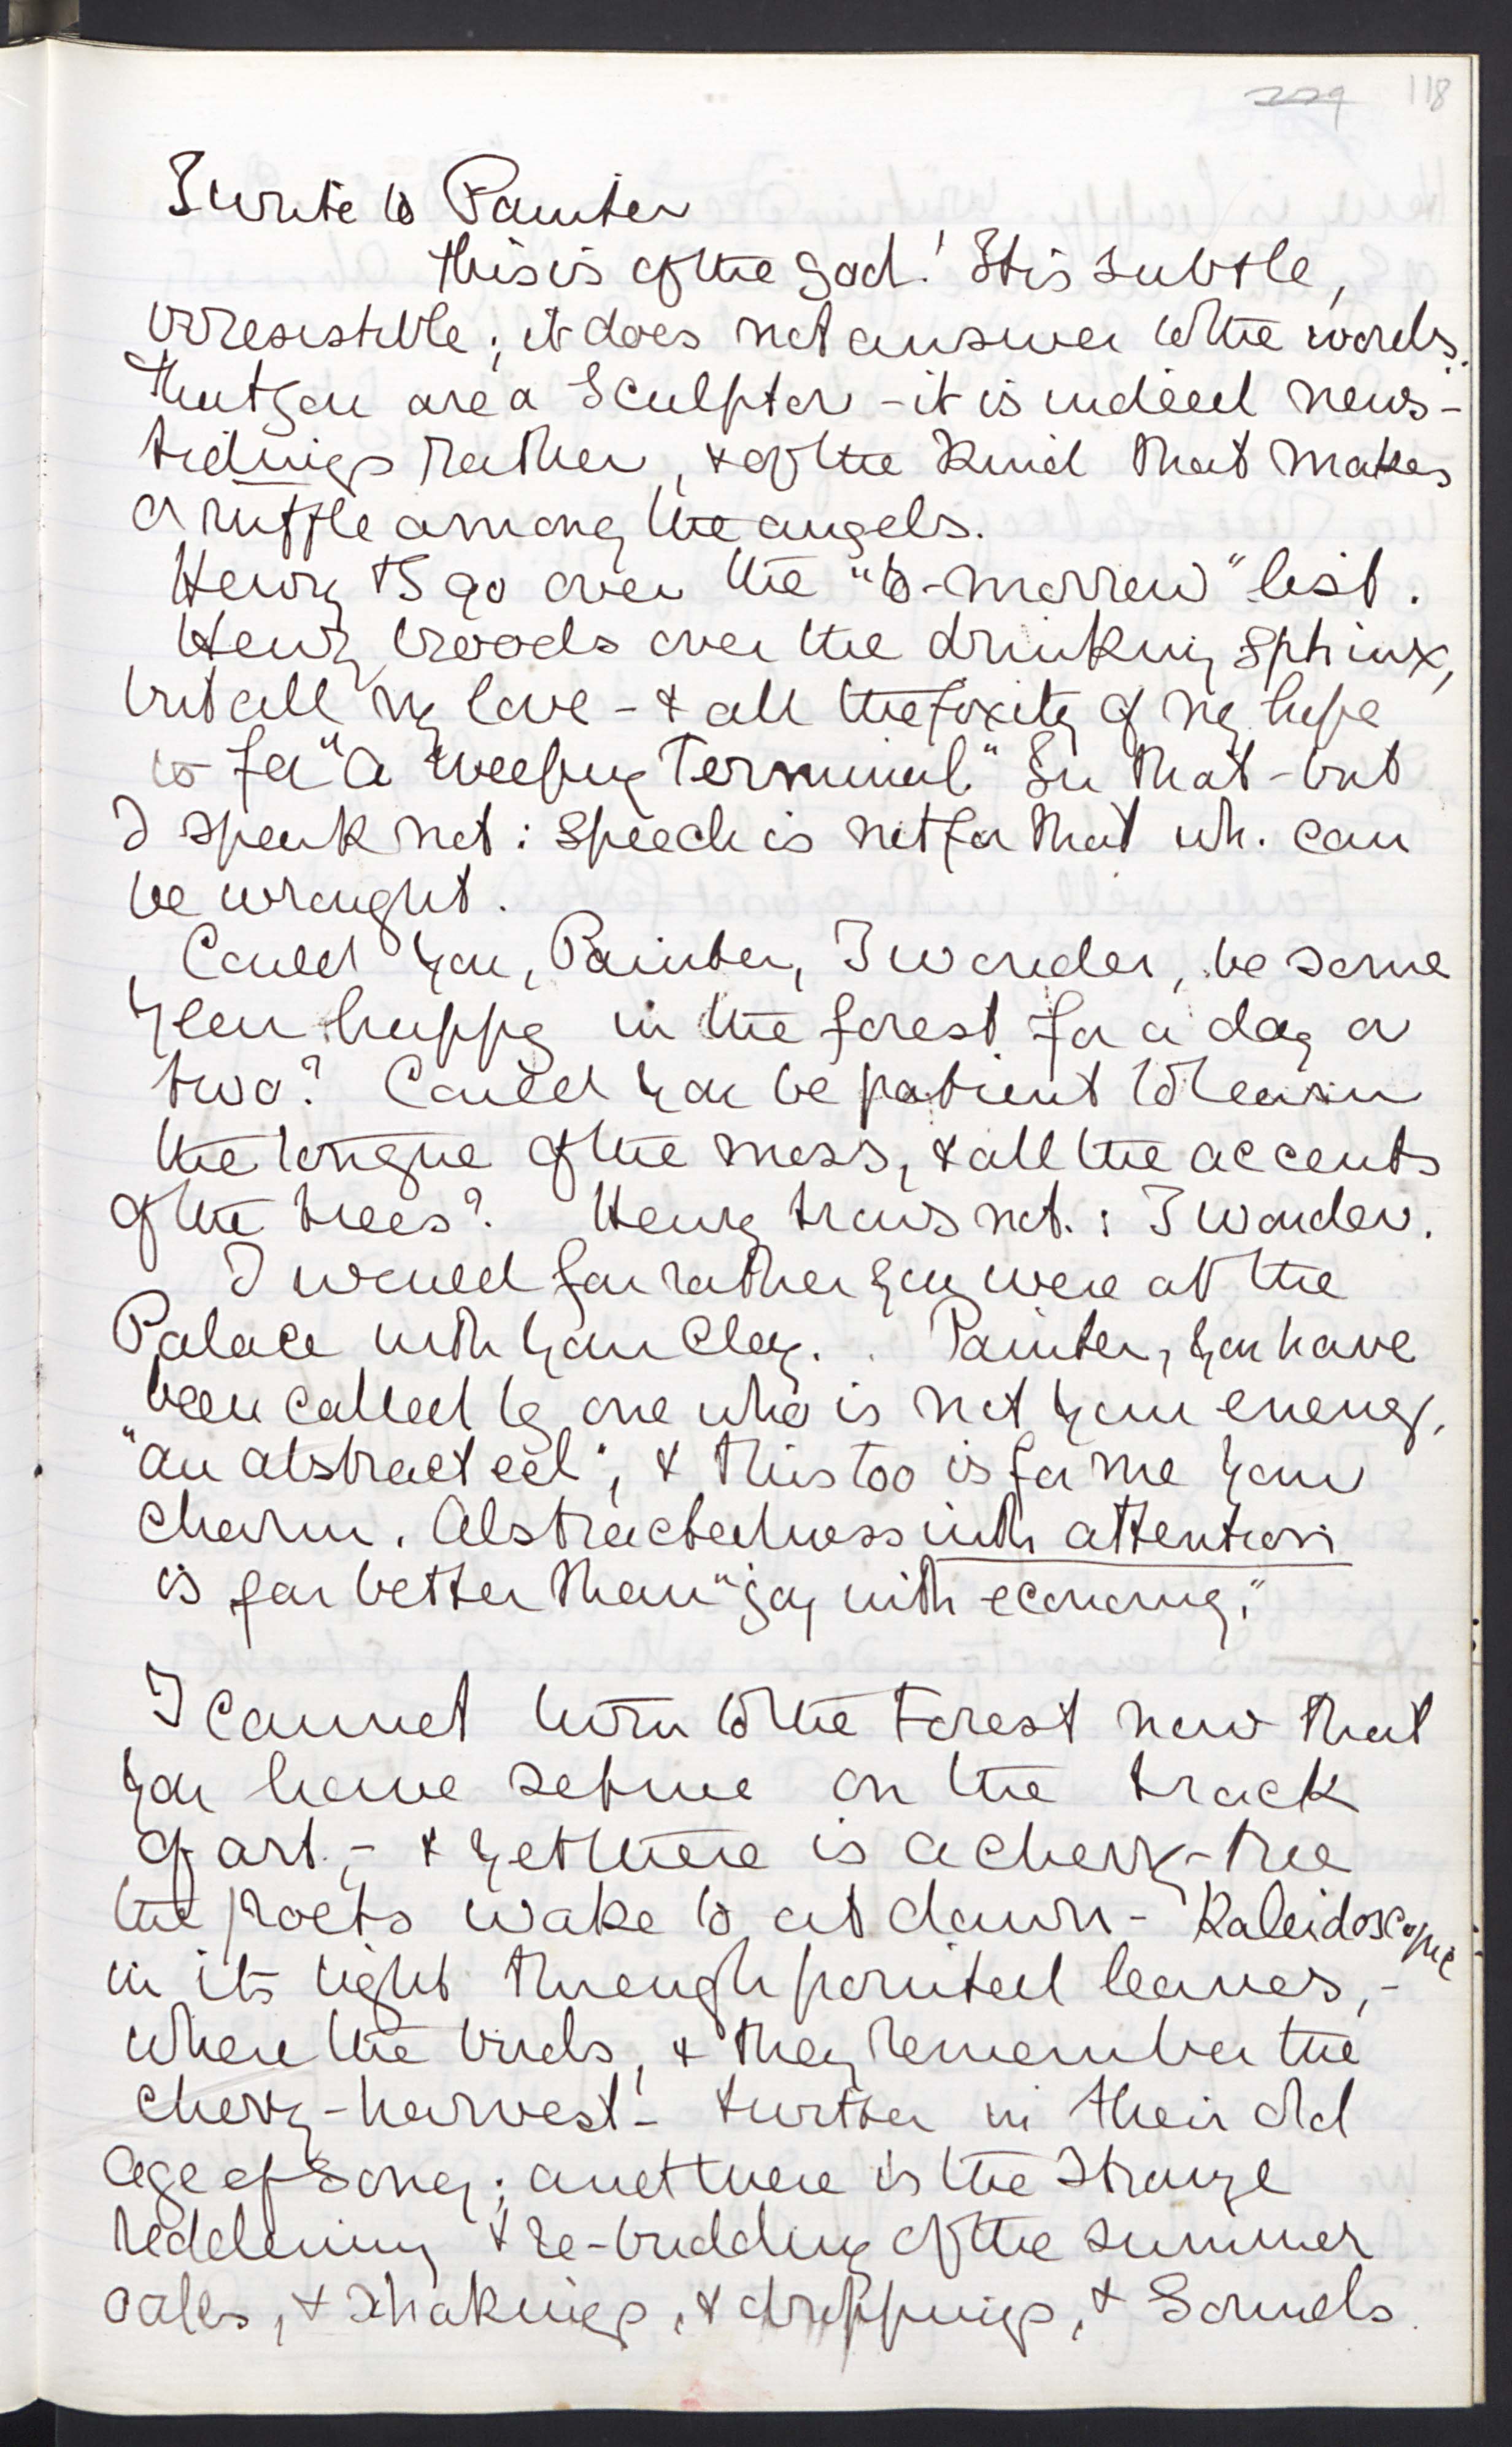 229 118
I write to Painter
This is of the god! It is subtle,
irresistible; it does not answer to the words.
That you are a Sculptor - it is indeed news -
tidings rather, & of the kind that makes
a ruffle among the angels.
Henry & I go over the "to-morrow" list.
Henry broods over the drinking Sphinx,
but all my love - & all the fixity of my hope
is for "a weeping Terminal." In that - but
I speak not: speech is not for that wh. can
be wrought.
Could you, Painter, I wonder, be some
how happy in the forest for a day or
two? Could you be patient to learn
the tongue of the moss, & all the accents
of the trees? Henry trows not: I wonder.
I would far rather you were at the
Palace with your Clay. Painter, you have
been called by one who is not your enemy,
"an abstract eel"; & this too is for me your
charm. Abstractedness with attention
is far better than "joy with economy."
I cannot turn to the Forest now that
you have set me on the track
of art, - & yet there is a cherry-tree
the poets wake to at dawn - Kaleidoscopic
in its light through pointed leaves, -
where the birds, & they remember the
cherry-harvest - twitter in their old
age of Song; and there is the strange
reddening & re-budding of the summer
oaks, & shakings, & drippings, & Sounds.